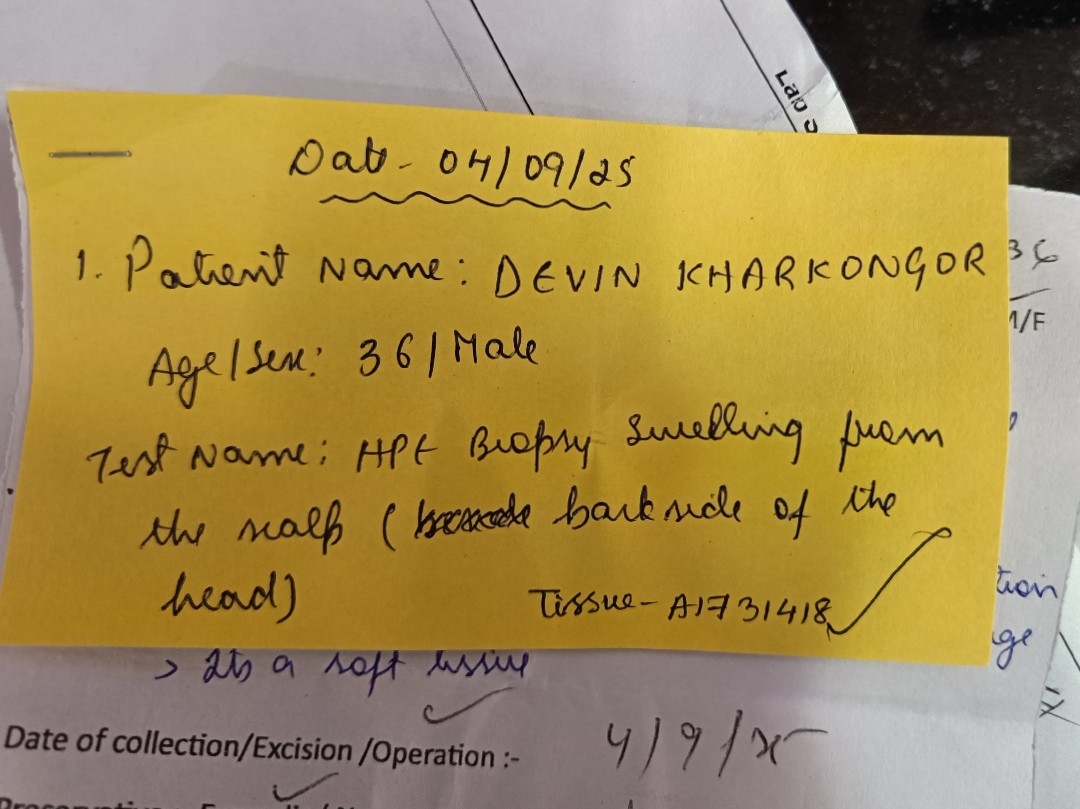 Lab
Date - 04/09/25
1. Patient Name: DEVIN KHARKONGOR
36
Age/Sex: 36/Male
M/F
Test Name: HPE Biopsy Swelling from
the scalp ( back side of the
head)
tion
Tissue - A1731418
ge
> Its a soft tissue
Date of collection/Excision /Operation :- 4/9/25